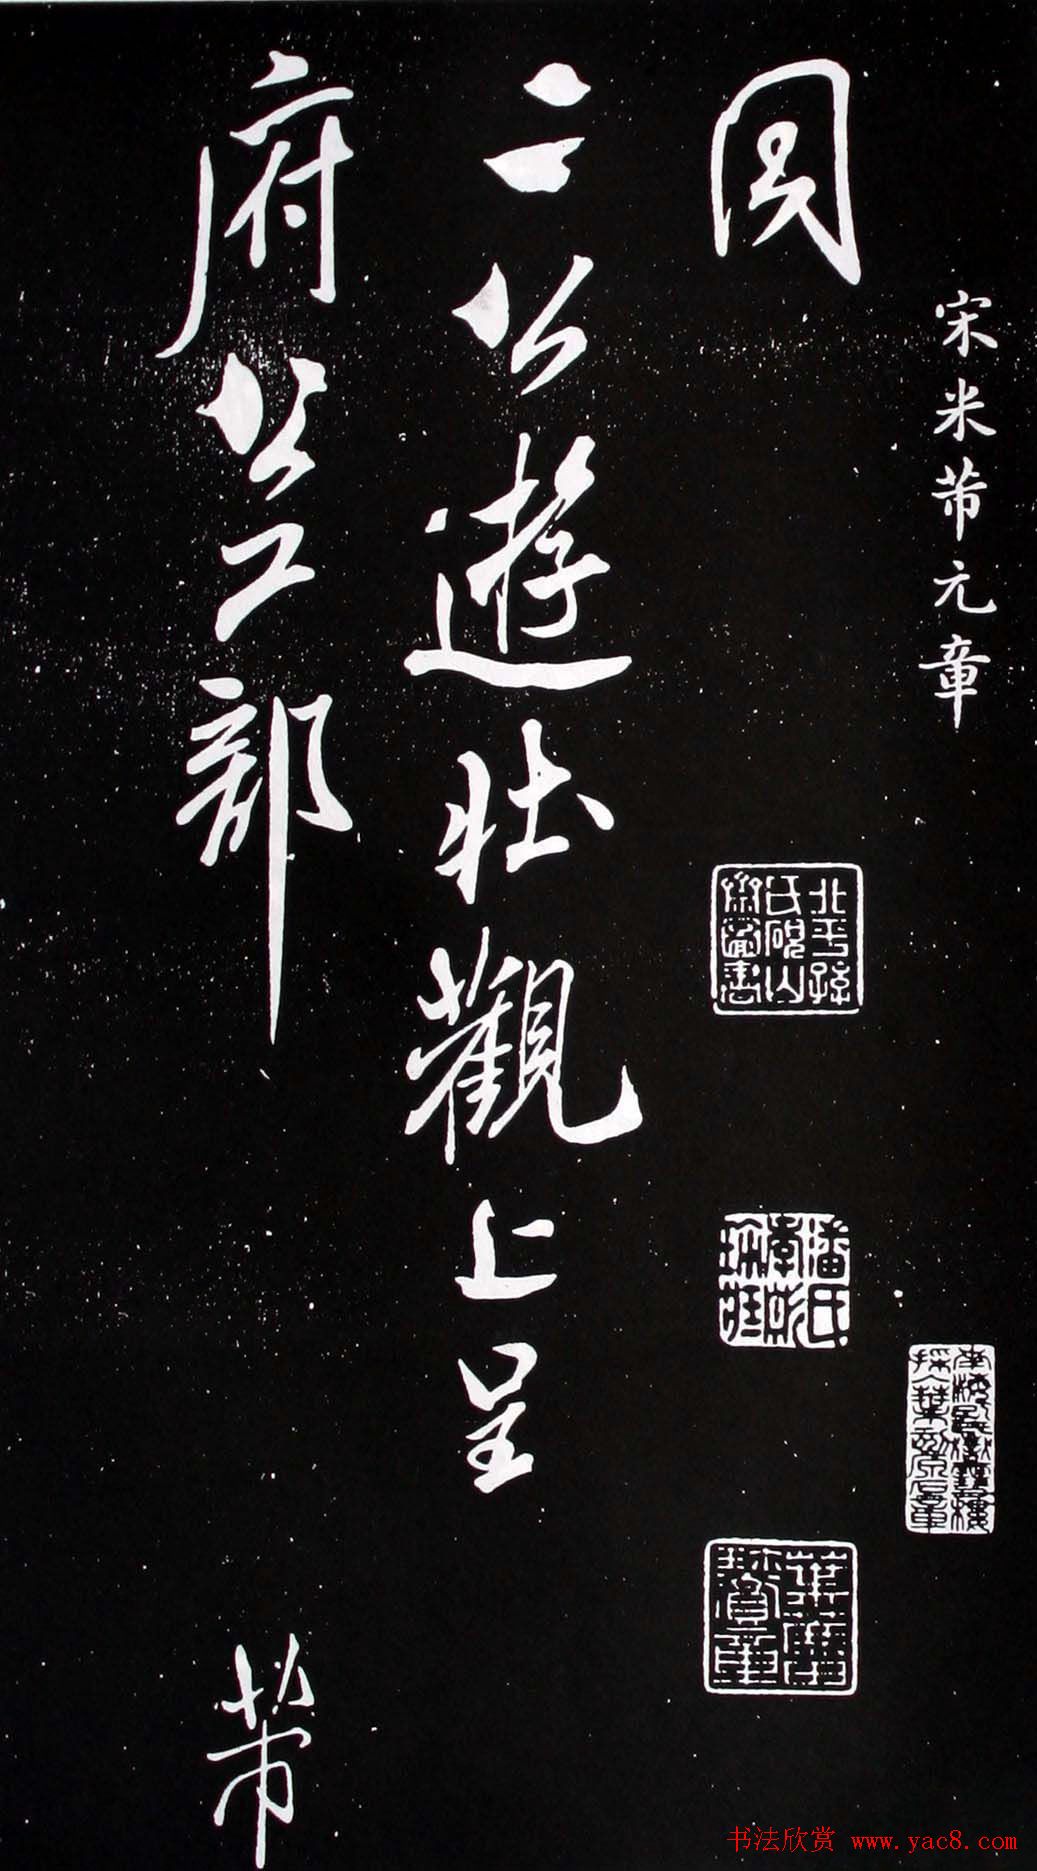 宋米芾元章
同
二公遊壯觀上呈
府公工部
芾
北平孫氏硯山齋圖書
潘氏季彤珍藏
书法欣赏 www.yac8.com